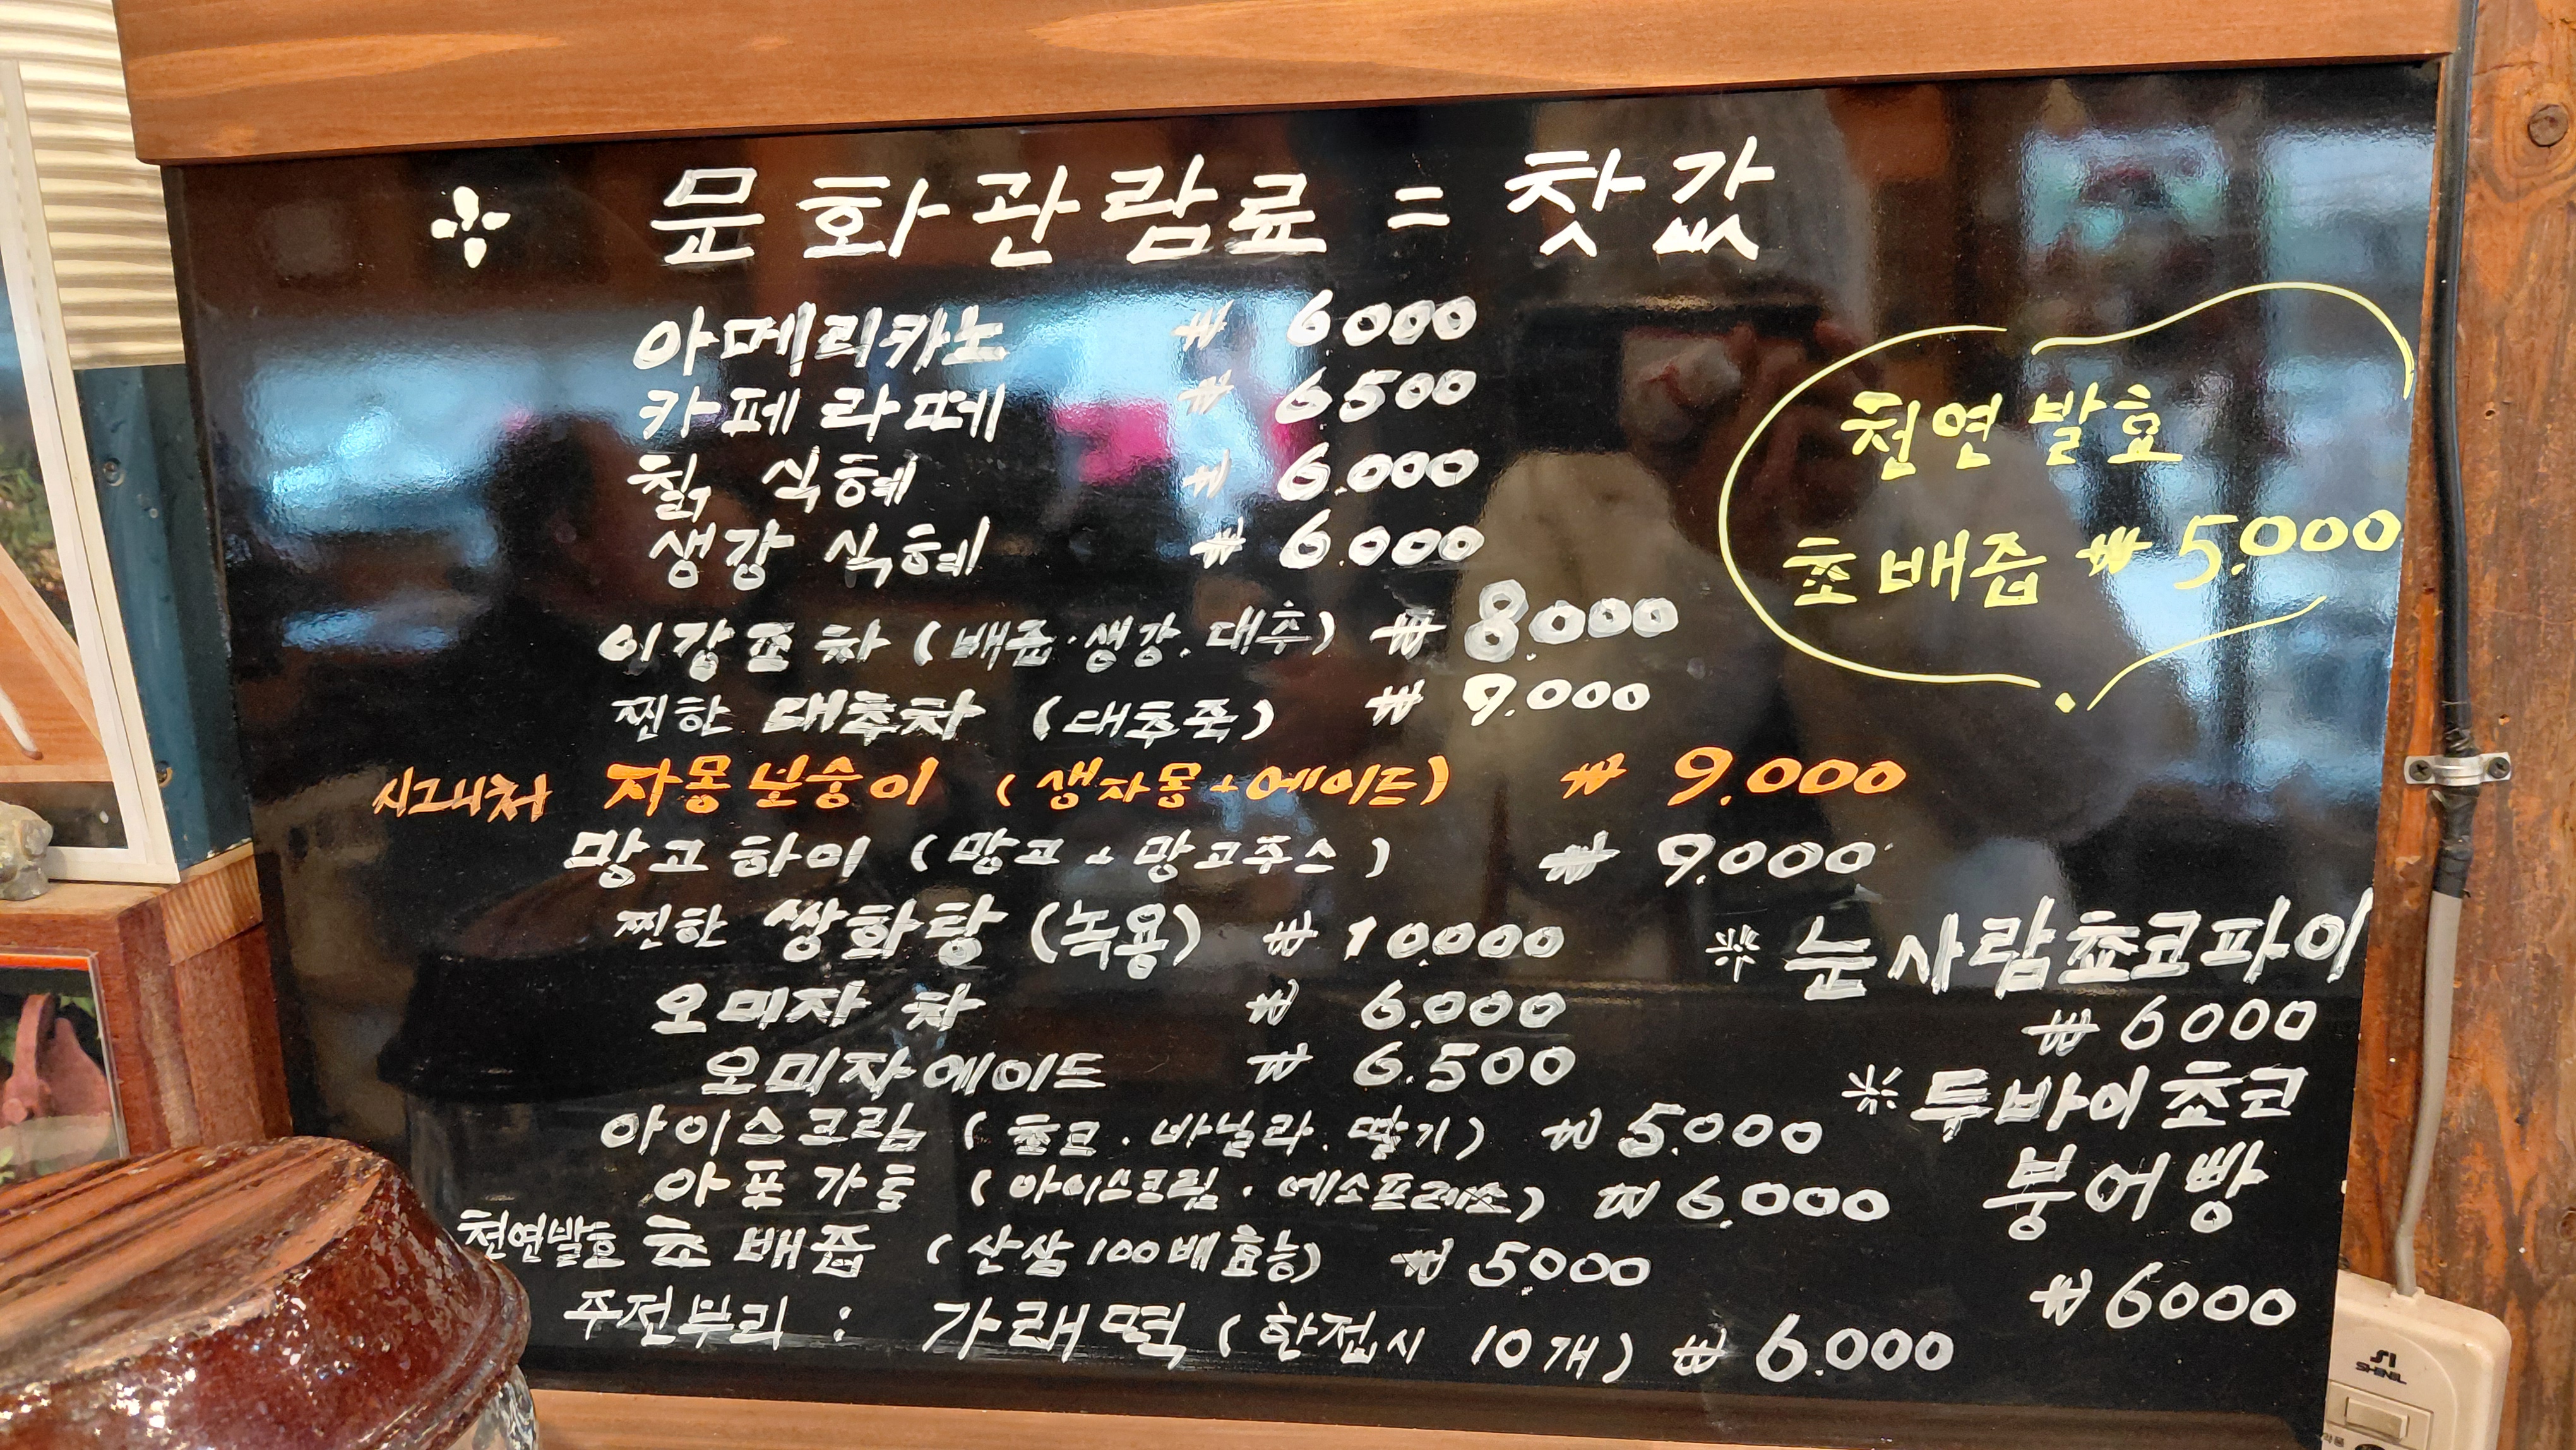 문화관람료 = 찻값
아메리카노 ₩ 6000
카페라떼 ₩ 6500
칡 식혜 ₩ 6.000
생강 식혜 ₩ 6.000
이강포차 (배즙·생강.대추) ₩ 8.000
찐한 대추차 (대추죽) ₩ 9.000
시그니처 자몽보숭이 (생자몽+에이드) ₩ 9.000
망고하이 (망고+망고쥬스) ₩ 9.000
찐한 쌍화탕 (녹용) ₩ 10.000
오미자 차 ₩ 6.000
오미자에이드 ₩ 6.500
아이스크림 (쵸코.바닐라.딸기) ₩ 5.000
아포가토 (아이스크림.에소프레소) ₩ 6.000
천연발효 초배즙 (산삼100배효능) ₩ 5000
주전부리 : 가래떡 (한접시 10개) ₩ 6.000
천연발효
초배즙 ₩ 5.000
※ 눈사람쵸코파이
₩ 6000
※ 두바이쵸코
붕어빵
₩ 6000
SHINIL